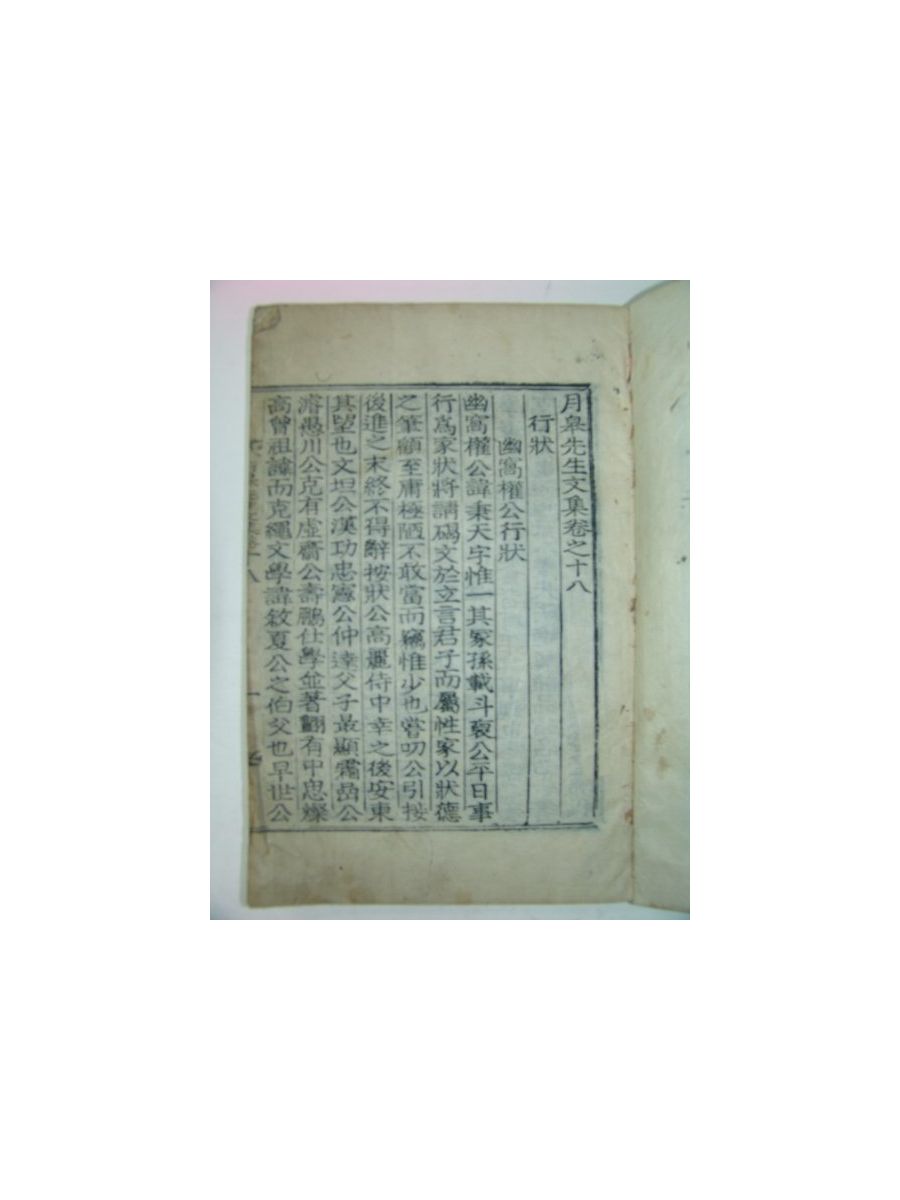 月皐先生文集卷之十八
行狀
幽窩權公行狀
幽窩權公諱秉天字惟一其冢孫載斗裒公平日事
行爲家狀將請碣文於立言君子而屬性家以狀德
之筆顧至庸極陋不敢當而竊惟少也嘗叨公引接
後進之末終不得辭按狀公高麗侍中幸之後安東
其望也文坦公漢功忠憲公仲達父子最顯霜嵒公
濬愚川公克有虛齋公壽鵬仕學並著翻有中思燦
高曾祖諱而克繩文學諱敘夏公之伯父也早世公